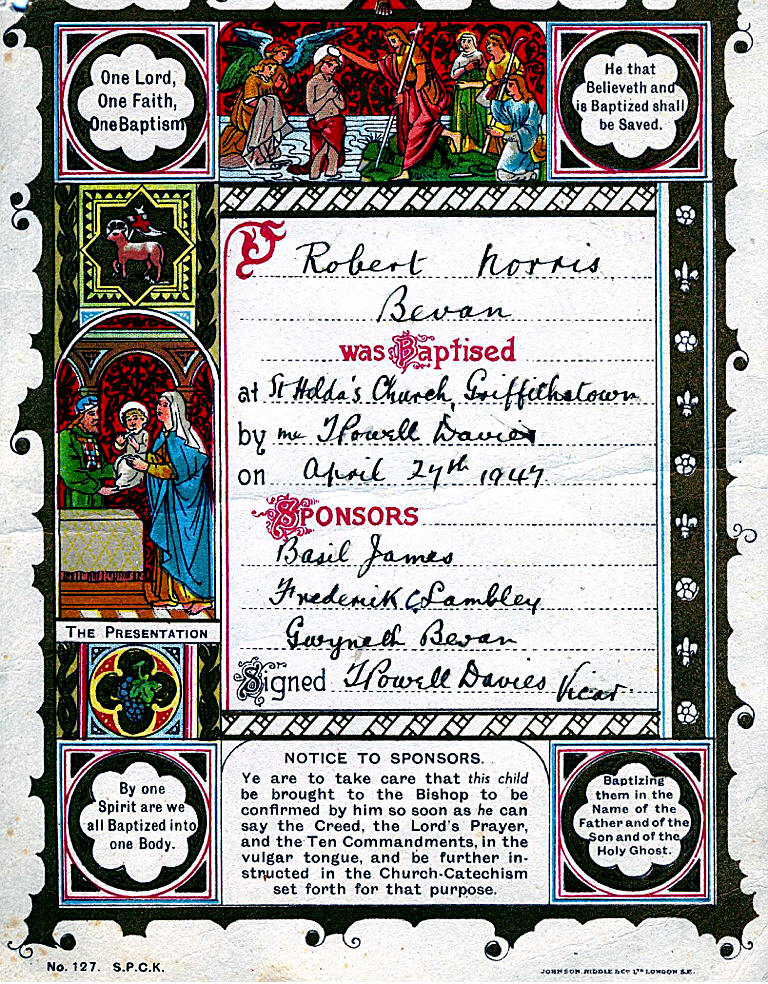 One Lord,
One Faith,
One Baptism
He that
Believeth and
is Baptized shall
be Saved.
Robert Norris
Bevan
was Baptised
at St Hilda's Church, Griffithstown
by me T Powell Davies
on April 27th 1947
SPONSORS
Basil James
Frederick C Lambley
Gwyneth Bevan
Signed T Powell Davies Vicar.
THE PRESENTATION
By one
Spirit are we
all Baptized into
one Body.
NOTICE TO SPONSORS.
Ye are to take care that this child
be brought to the Bishop to be
confirmed by him so soon as he can
say the Creed, the Lord's Prayer,
and the Ten Commandments, in the
vulgar tongue, and be further in-
structed in the Church-Catechism
set forth for that purpose.
Baptizing
them in the
Name of the
Father and of the
Son and of the
Holy Ghost.
No. 127. S.P.C.K.
JOHNSON, RIDDLE & CO LTD LONDON S.E.